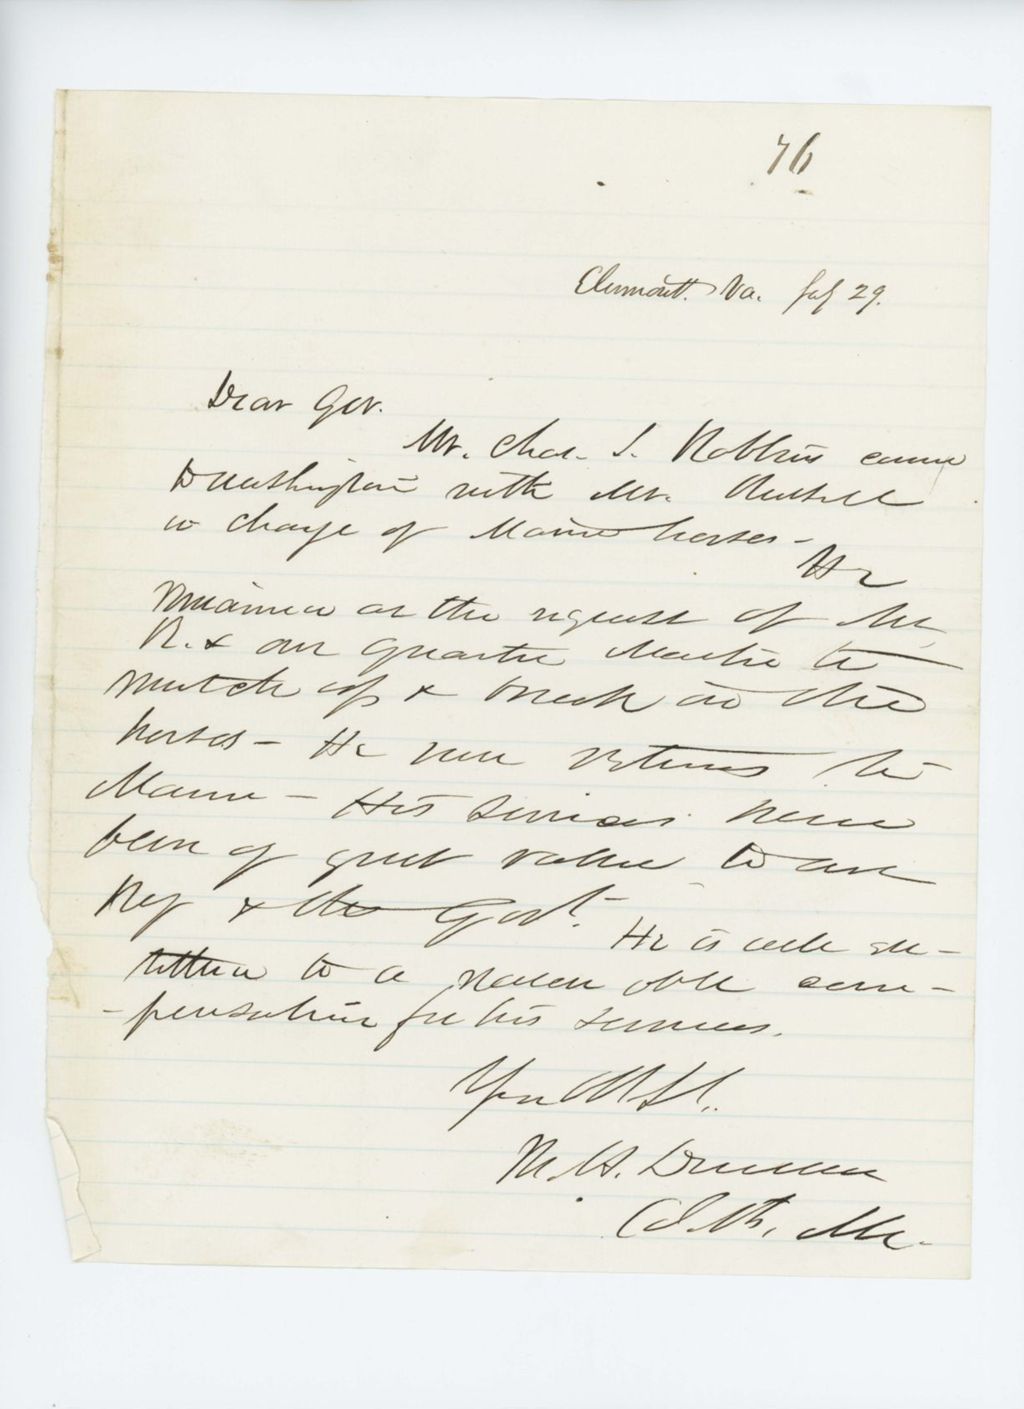 76
Clermont. Va. July 29.
Dear Gov.
Mr. Chas. S. Robbins came
to Washington with Mr. Russell
in charge of Maine horses -
He
remained at the request of Mr
R. & our Quarter Master to
match up & break in the
horses - He now returns to
Maine - His services have
been of great value to our
Reg & the Govt.
He is well en-
titled to a reasonable com-
-pensation for his services.
Your Obt St.
M. H. Dunnell
Col. 5th. Me.